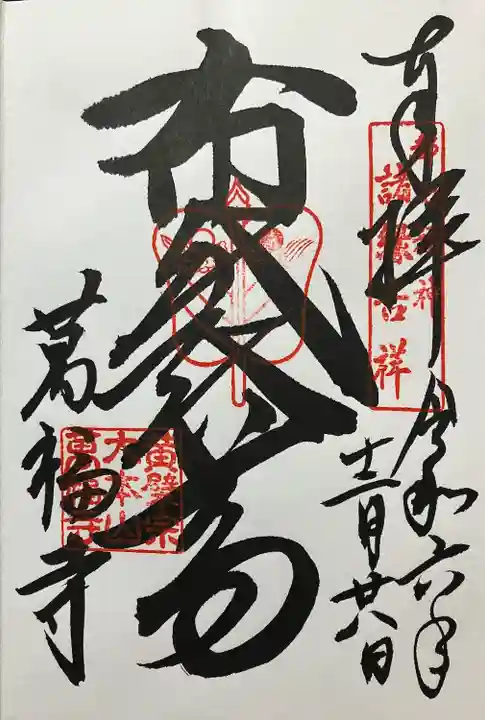 奉拝
諸縁吉祥
令和六年
十二月廿八日
布袋尊
萬福寺
黄檗宗
大本山
萬福寺